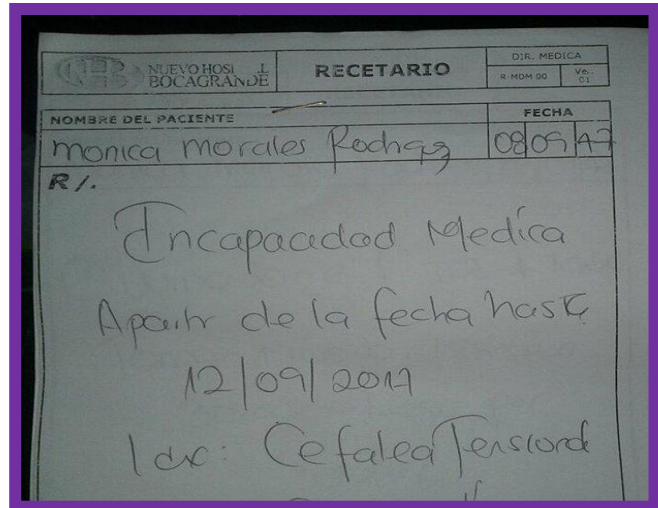 NUEVO HOSI L
BOCAGRANDE
RECETARIO
DIR. MEDICA
R-MDM 00
Ve..
01
NOMBRE DEL PACIENTE
FECHA
Monica Morales
08 09 17
R/.
Incapacidad Medica
Apartir de la fecha hasta
12/09/2017
Idx: Cefalea Tensional